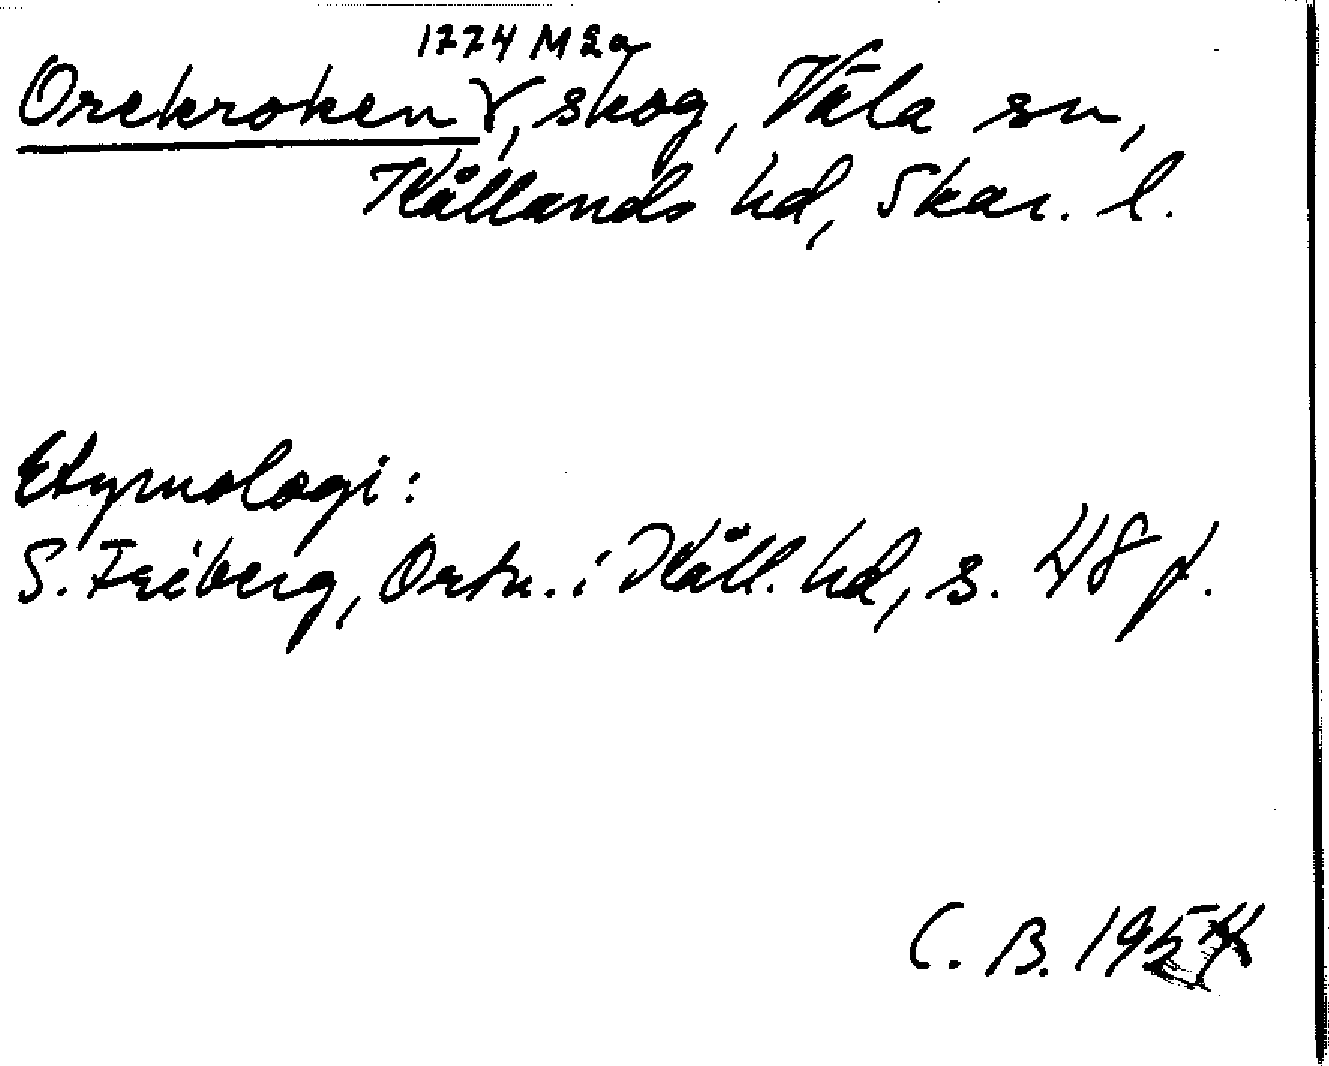 1774 M2a
Orekroken, skog, Väla sn,
Kållands hd, Skar. l.
Etymologi:
S. Freiberg, Ortn. i Kåll. hd, s. 48 f.
C. B. 1954